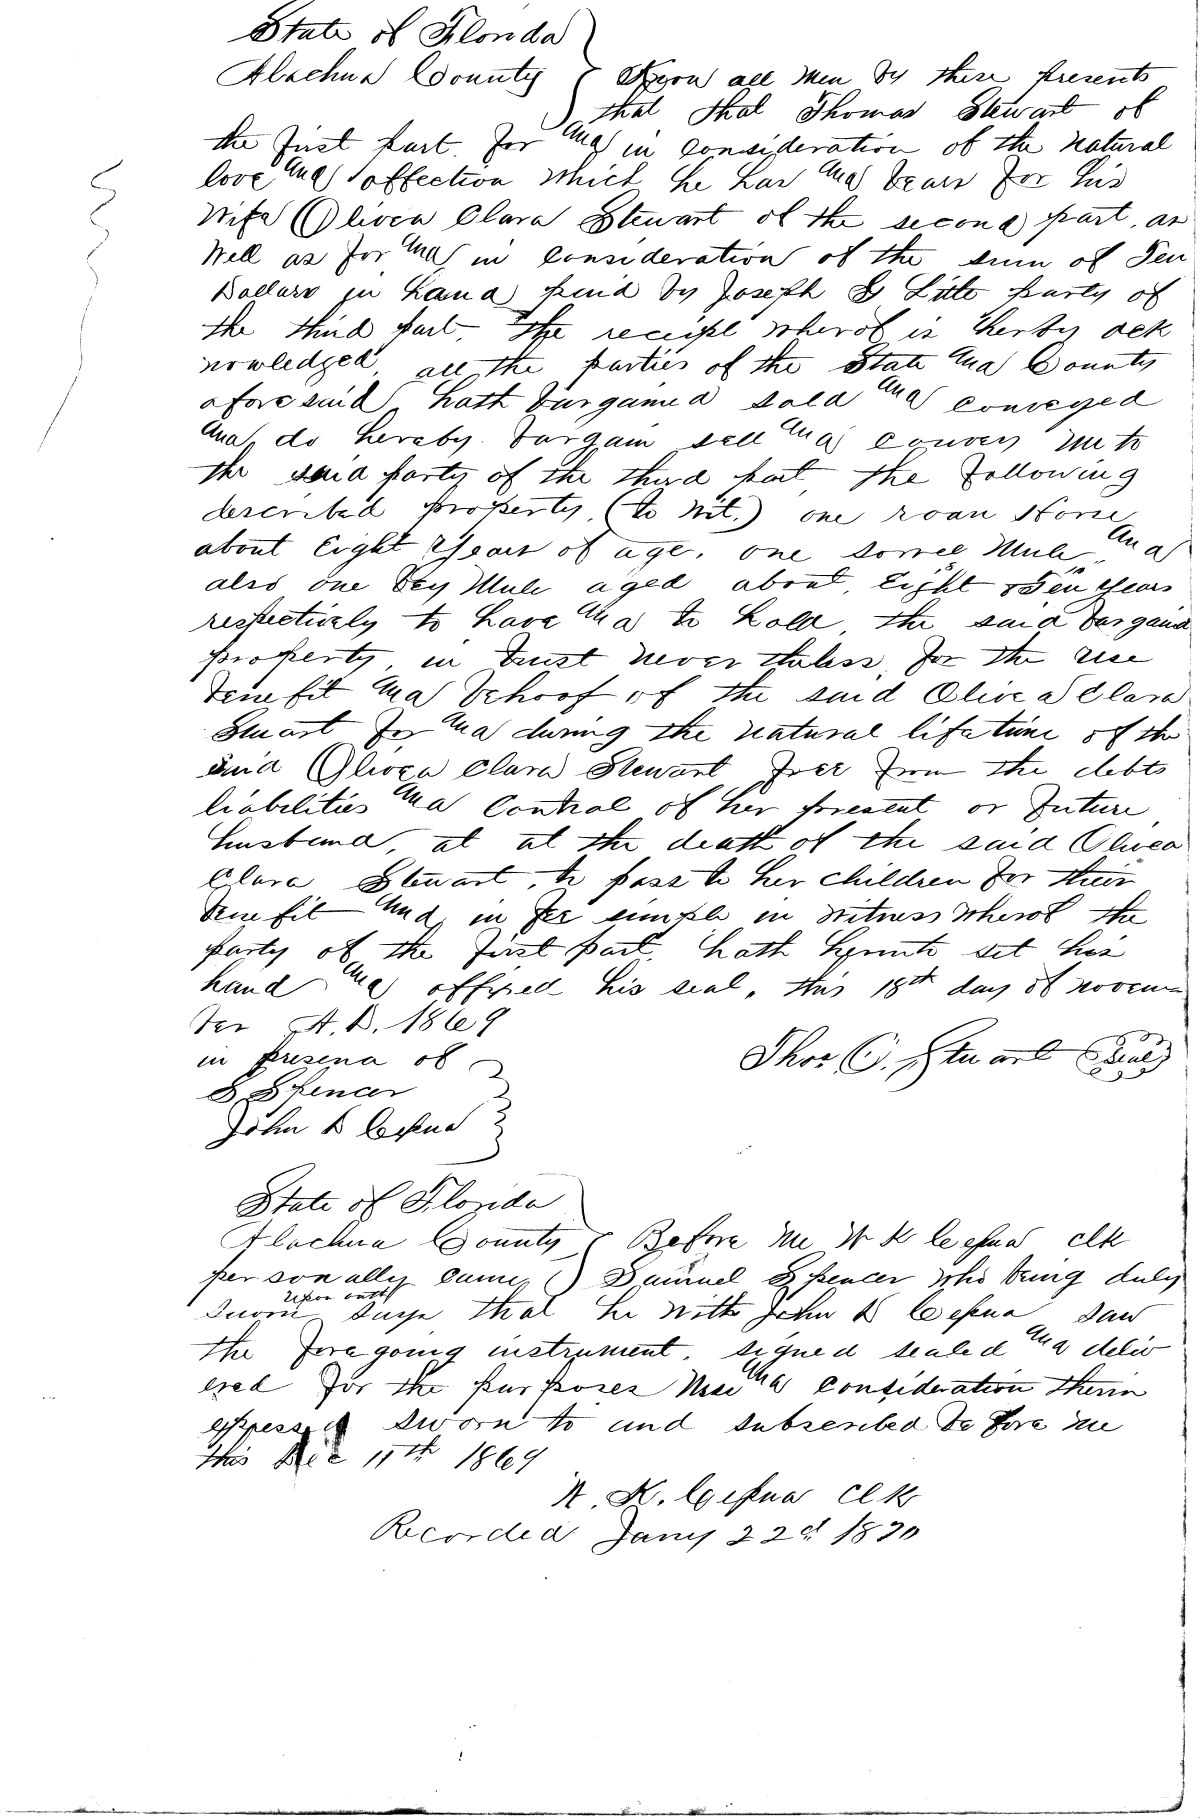 State of Florida
Alachua County } Know all men by these presents
that that Thomas Stewart of
the first part. for and in consideration of the natural
love and affection which he has and bears for his
Wife Olivea Clara Stewart of the second part, as
Well as for and in consideration of the sum of Ten
Dollars in hand paid by Joseph S Litle party of
the third part, the receipt wherof is herby ack
nowledged, all the parties of the State and County
aforesaid, hath bargained sold and conveyed
and, do hereby. bargain sell and convey unto
the said party of the third part the following
described property, (to wit.) one roan Horse
about Eight Years of age, one sorrel Mule, and
also one Bey Mule aged about, Eight & Ten Years
respectively to have and to hold, the said bargaind
property, in trust never theless, for the use
benefit and behoof of the said Olivea Clara
Stuart for and during the natural lifetime of the
said Olivea Clara Stewart free from the debts
liabilities and control of her present or future
husband, at at the death of the said Olivea
Clara Stewart, to pass to her children for their
benefit and, in fee simple in witness wherof the
party of the first part, hath herunto set his
hand and affixed his seal, this 18th day of novem
ber A.D. 1869
in presena of
Thos C. Stuart (Seal)
S Spencer
John D Cessna
State of Florida
Alachua County } Before me W K Cessna clk
personally came, Samuel Spencer who being duly
sworn upon oath says that he with John D Cessna saw
the foregoing instrument, signed sealed and deliv
ered for the purposes use and consideration therin
expressed sworn to and subscribed before me
this Dec 11th 1869
W. K. Cessna Clk
Recorded Jany 22d 1870